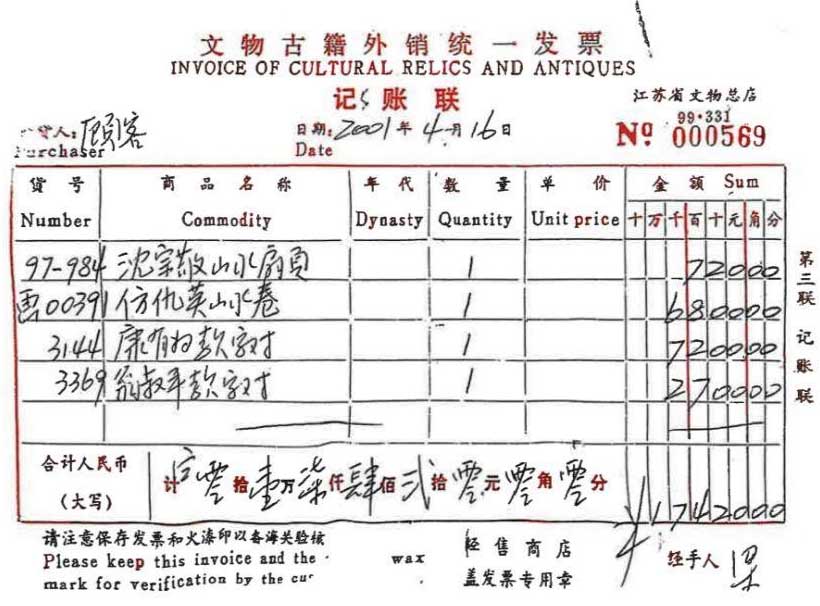 文物古籍外销统一发票
INVOICE OF CULTURAL RELICS AND ANTIQUES
记账联
江苏省文物总店
99·331
货人: 顾客
Purchaser
日期: 2001年4月16日
Date
Nº 000569
货号 商品名称 年代 数量 单价 金额 Sum
Number Commodity Dynasty Quantity Unit price 十万千百十元角分
97-984 沈宗敬山水扇页 1 72000
00391 仿仇英山水卷 1 680000
3144 康有为款字对 1 720000
3369 翁叔平款字对 1 270000
合计人民币
(大写)
计 零拾壹万柒仟肆佰贰拾零元零角零分
¥1742000
请注意保存发票和火漆印以备海关验核
Please keep this invoice and the wax
mark for verification by the cus
经售商店
盖发票专用章
经手人 梁
第三联 记账联